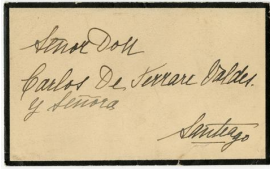 Señor Don
Carlos De Ferrari Valdes.
y Señora
Santiago